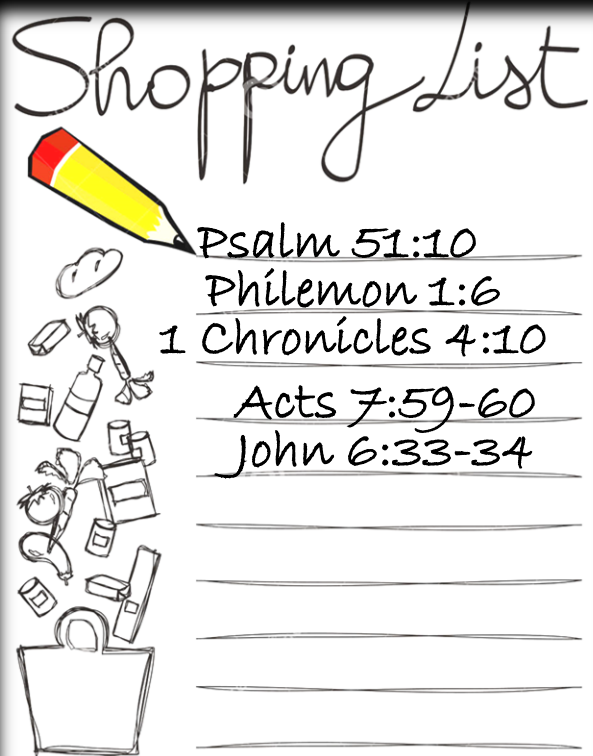 Shopping List
Psalm 51:10
Philemon 1:6
1 Chronicles 4:10
Acts 7:59-60
John 6:33-34